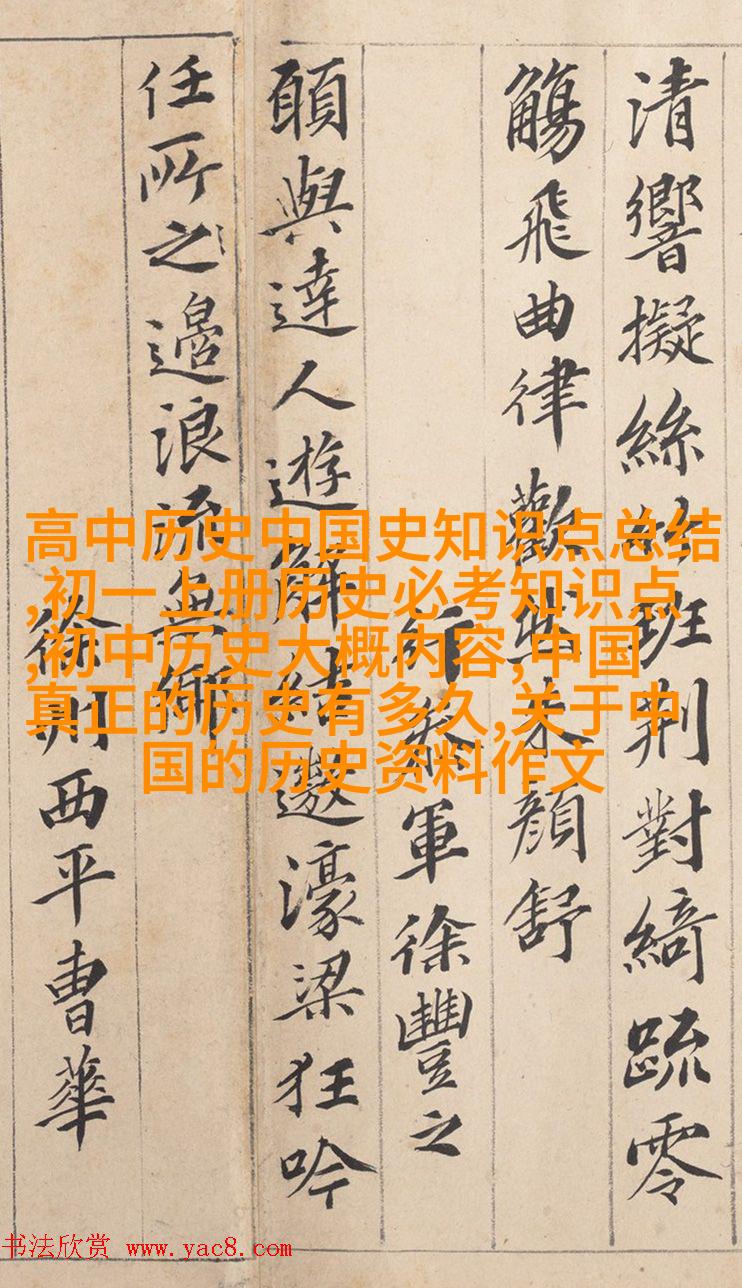 清響擬絲竹班荆對綺䟽零
觴飛曲律歡然朱顔舒
行叅軍徐豐之
願與達人遊解結遨濠梁狂吟
任所之邉浪流無
徐州西平曹華
高中历史中国史知识点总结
,初一上册历史必考知识点
,初中历史大概内容,中国
真正的历史有多久,关于中
国的历史资料作文
书法欣赏 www.yac8.com